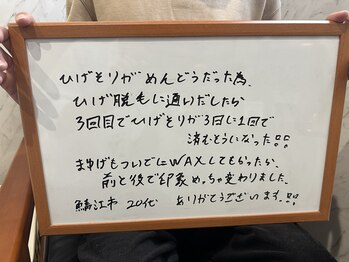 ひげそりがめんどうだった為、
ひげ脱毛に通いだしたら
3回目でひげそりが3日に1回で
済むとうになった!!
まゆげもついでにWAXしてもらったら、
前と後で印象めっちゃ変わりました。
鯖江市 20代 ありがとうございます。!!